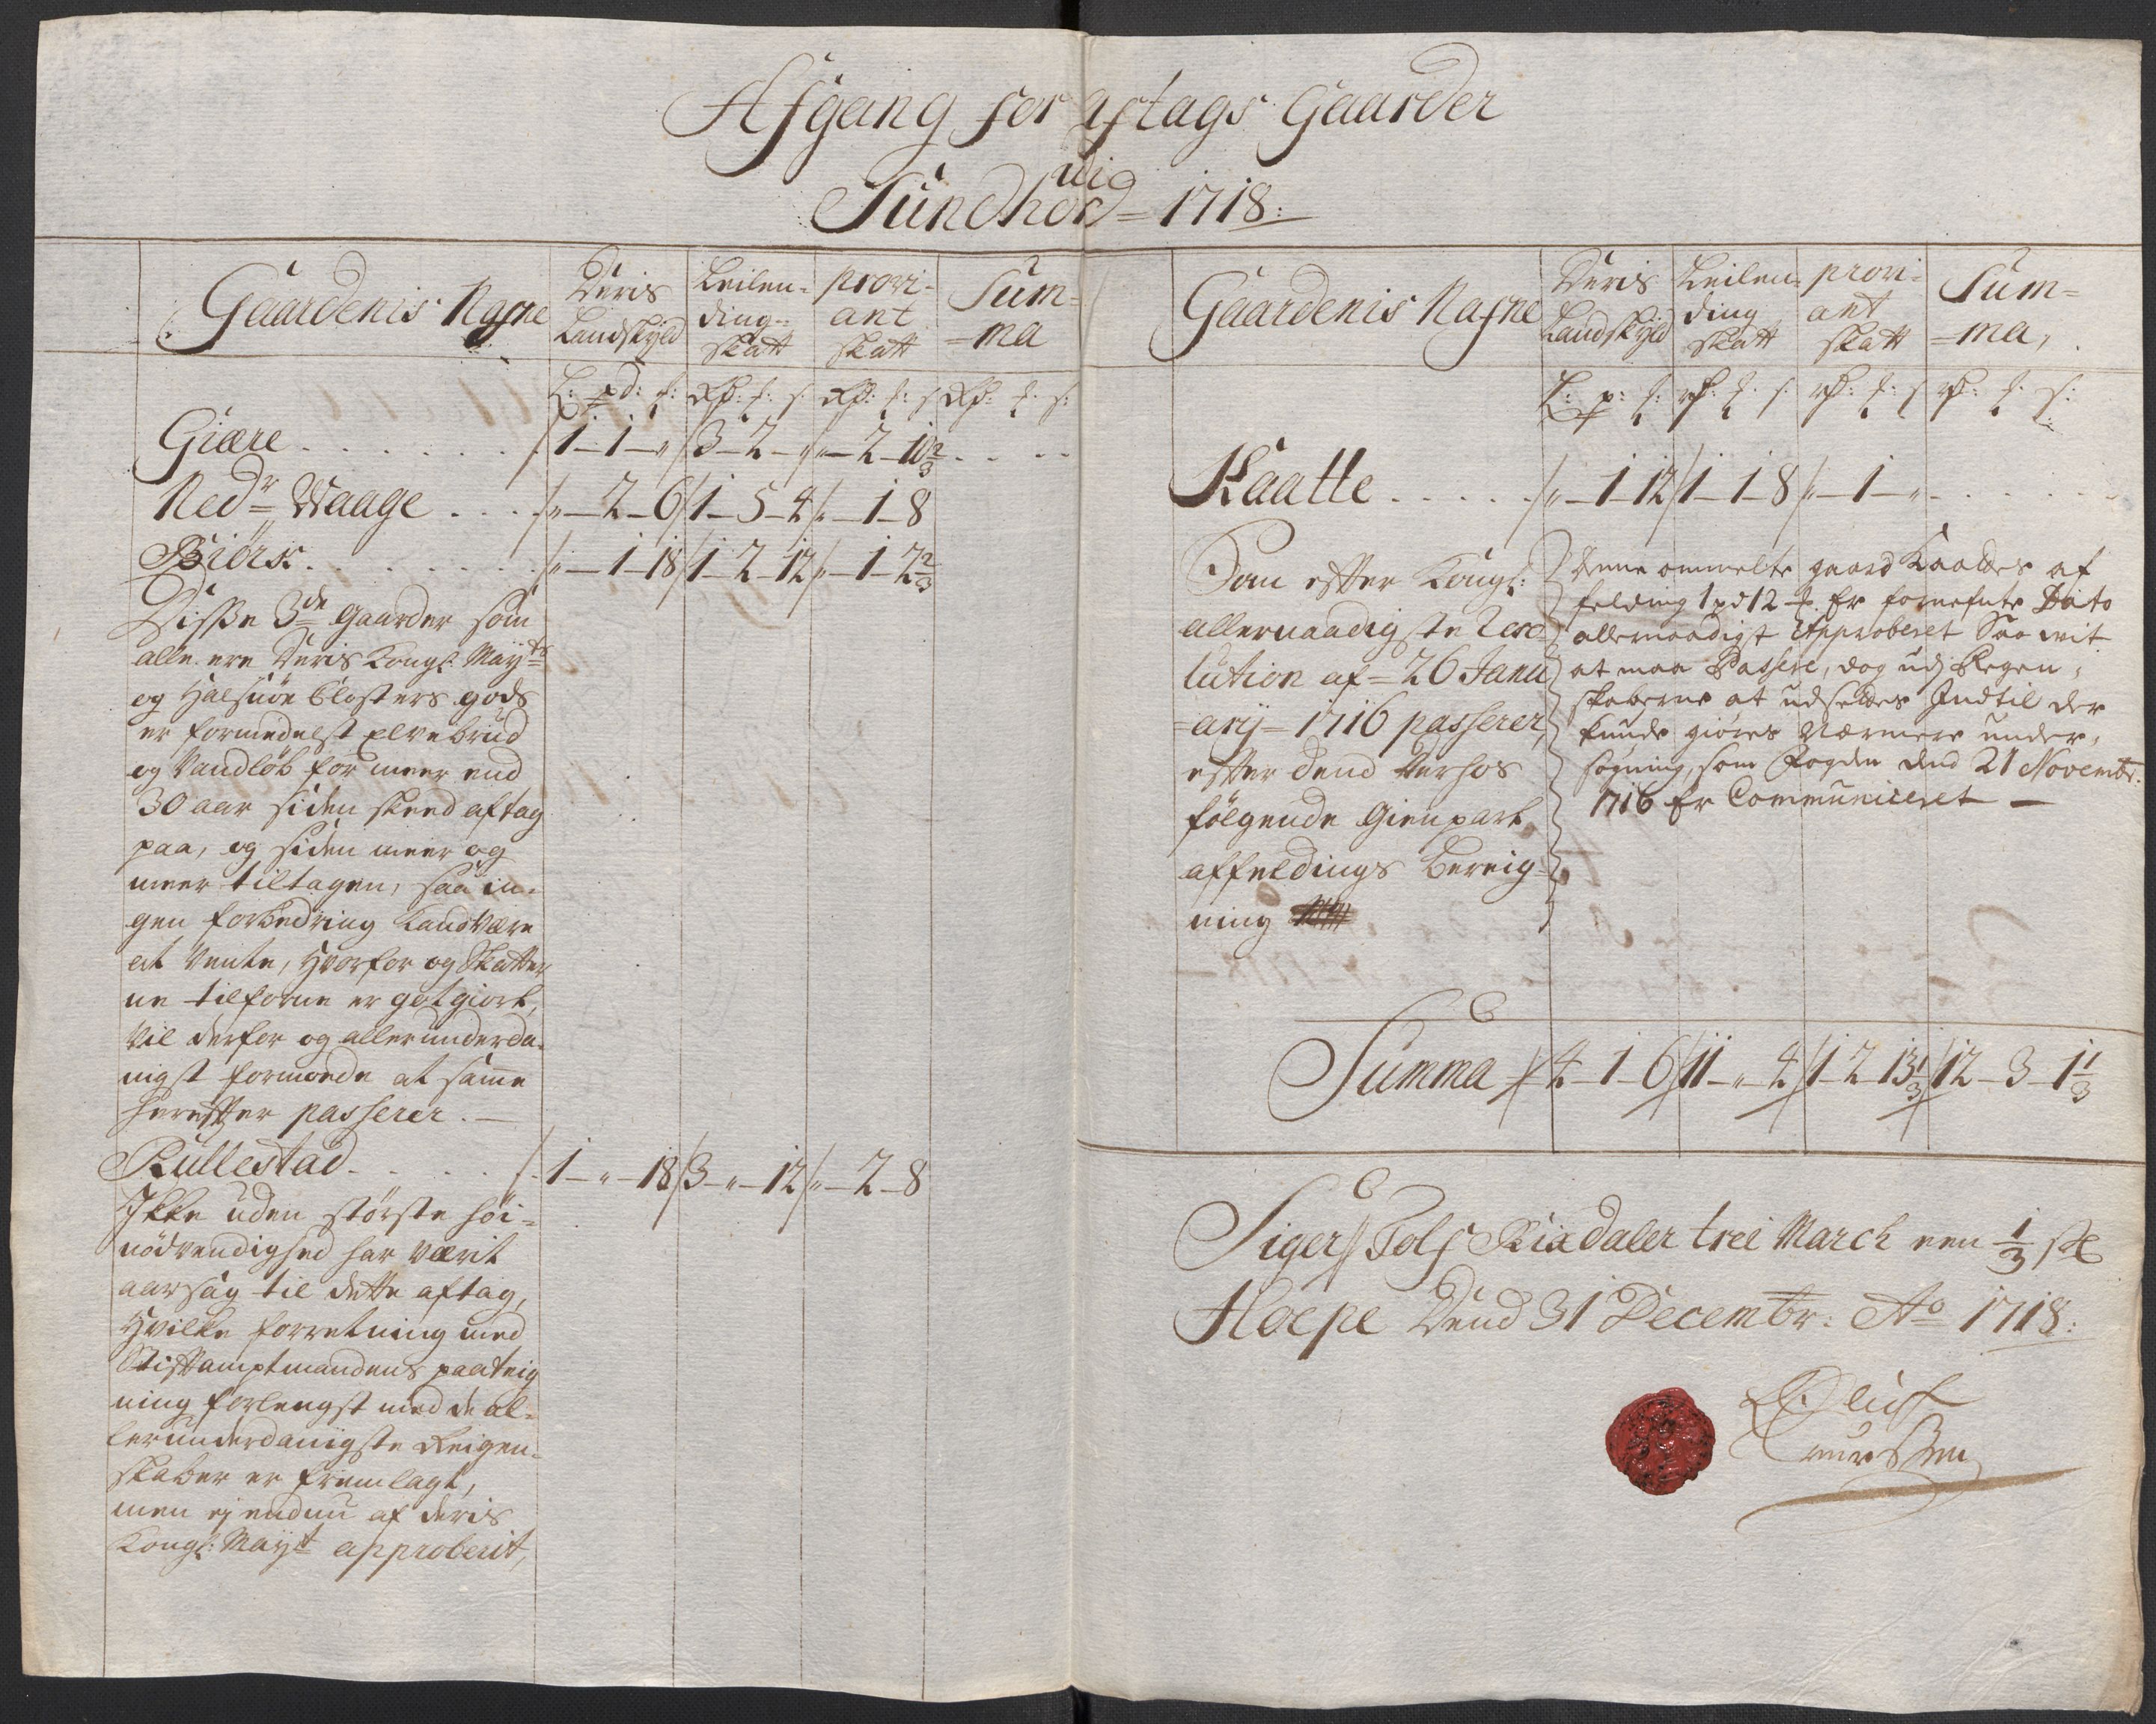 Afgang for Aftags Gaarder
udi
Sundhord = 1718:
Gaardenis Nafne
Deris Landskyld
Leilen-ding-skatt
Provi-ant skatt
Sum-ma
L: pd: f: Rd: f: s: Rd: f: s Rd: f: s:
Giære . . . . . . 1 - 1 - " 3 - 2 - " " - 2 - 10 2/3 . . . .
Nedr Waage . . . " - 2 - 6 1 - 5 - 4 " - 1 - 8
Biörk . . . . . . " - 1 - 18 1 - 2 - 12 " - 1 - 2 2/3
Disse 3de Gaarder som
alle ere Deris Kongl: Mayts
og Halsnöe Closters gods
er formedelst Elvebrud
og Vandlöb for meer end
30 aar siden skeed aftag
paa, og siden meer og
meer tiltagen, saa in-
gen forbedring kand være
at vente, hvorfor og Skatter
ne tilforne er gotgiort,
vil derfor og allerunderda-
nigst formode at samme
herefter passerer. -
Rullestad . . . . . 1 - " - 18 3 - " - 12 " - 2 - 8
Ikke uden störste höi-
nödvendighed har værit
aarsag til dette aftag,
hvilke forretning med
Stiftamptmandens paateig
ning forlengst med de al-
lerunderdanigste Reigen-
skaber er fremlagt,
men ej endnu af deris
Kongl: Mayt approberit,
Gaardenis Nafne
Deris Landskyld
Leilen-ding skatt
provi-ant skatt
Sum-ma,
L: p: f: rd: f: s: rd: f: s rd: f: s:
Kaatte . . . . . " - 1 - 12 1 - 1 - 8 " - 1 - " - . . . . .
Som efter Kongl:
allernaadigste Reso-
lution af = 26 Janu
=arij = 1716 passerer,
efter dend derhos
fölgende Gienpart
affeldings bereig-
ning
Denne ommelte gaard Kaattes af
felding 1 pd 12 f. Er fornefnte Dato
allernaadigst Approberet Saa vit
at maa Passere, dog udj Regen-
skaberne at udsettes Indtil der
kunde giöres Nærmere under-
sögning, som Fogden dend 21 Novembr.
1716 Er Communiceret -
Summa 4 - 1 - 6 11 - " - 4 1 - 2 - 13 1/3 12 - 3 - 1 1/3
Siger Tolf Rixdaler trei March een 1/3 sk
Hoepe Dend 31 Decembr: Ao 1718: